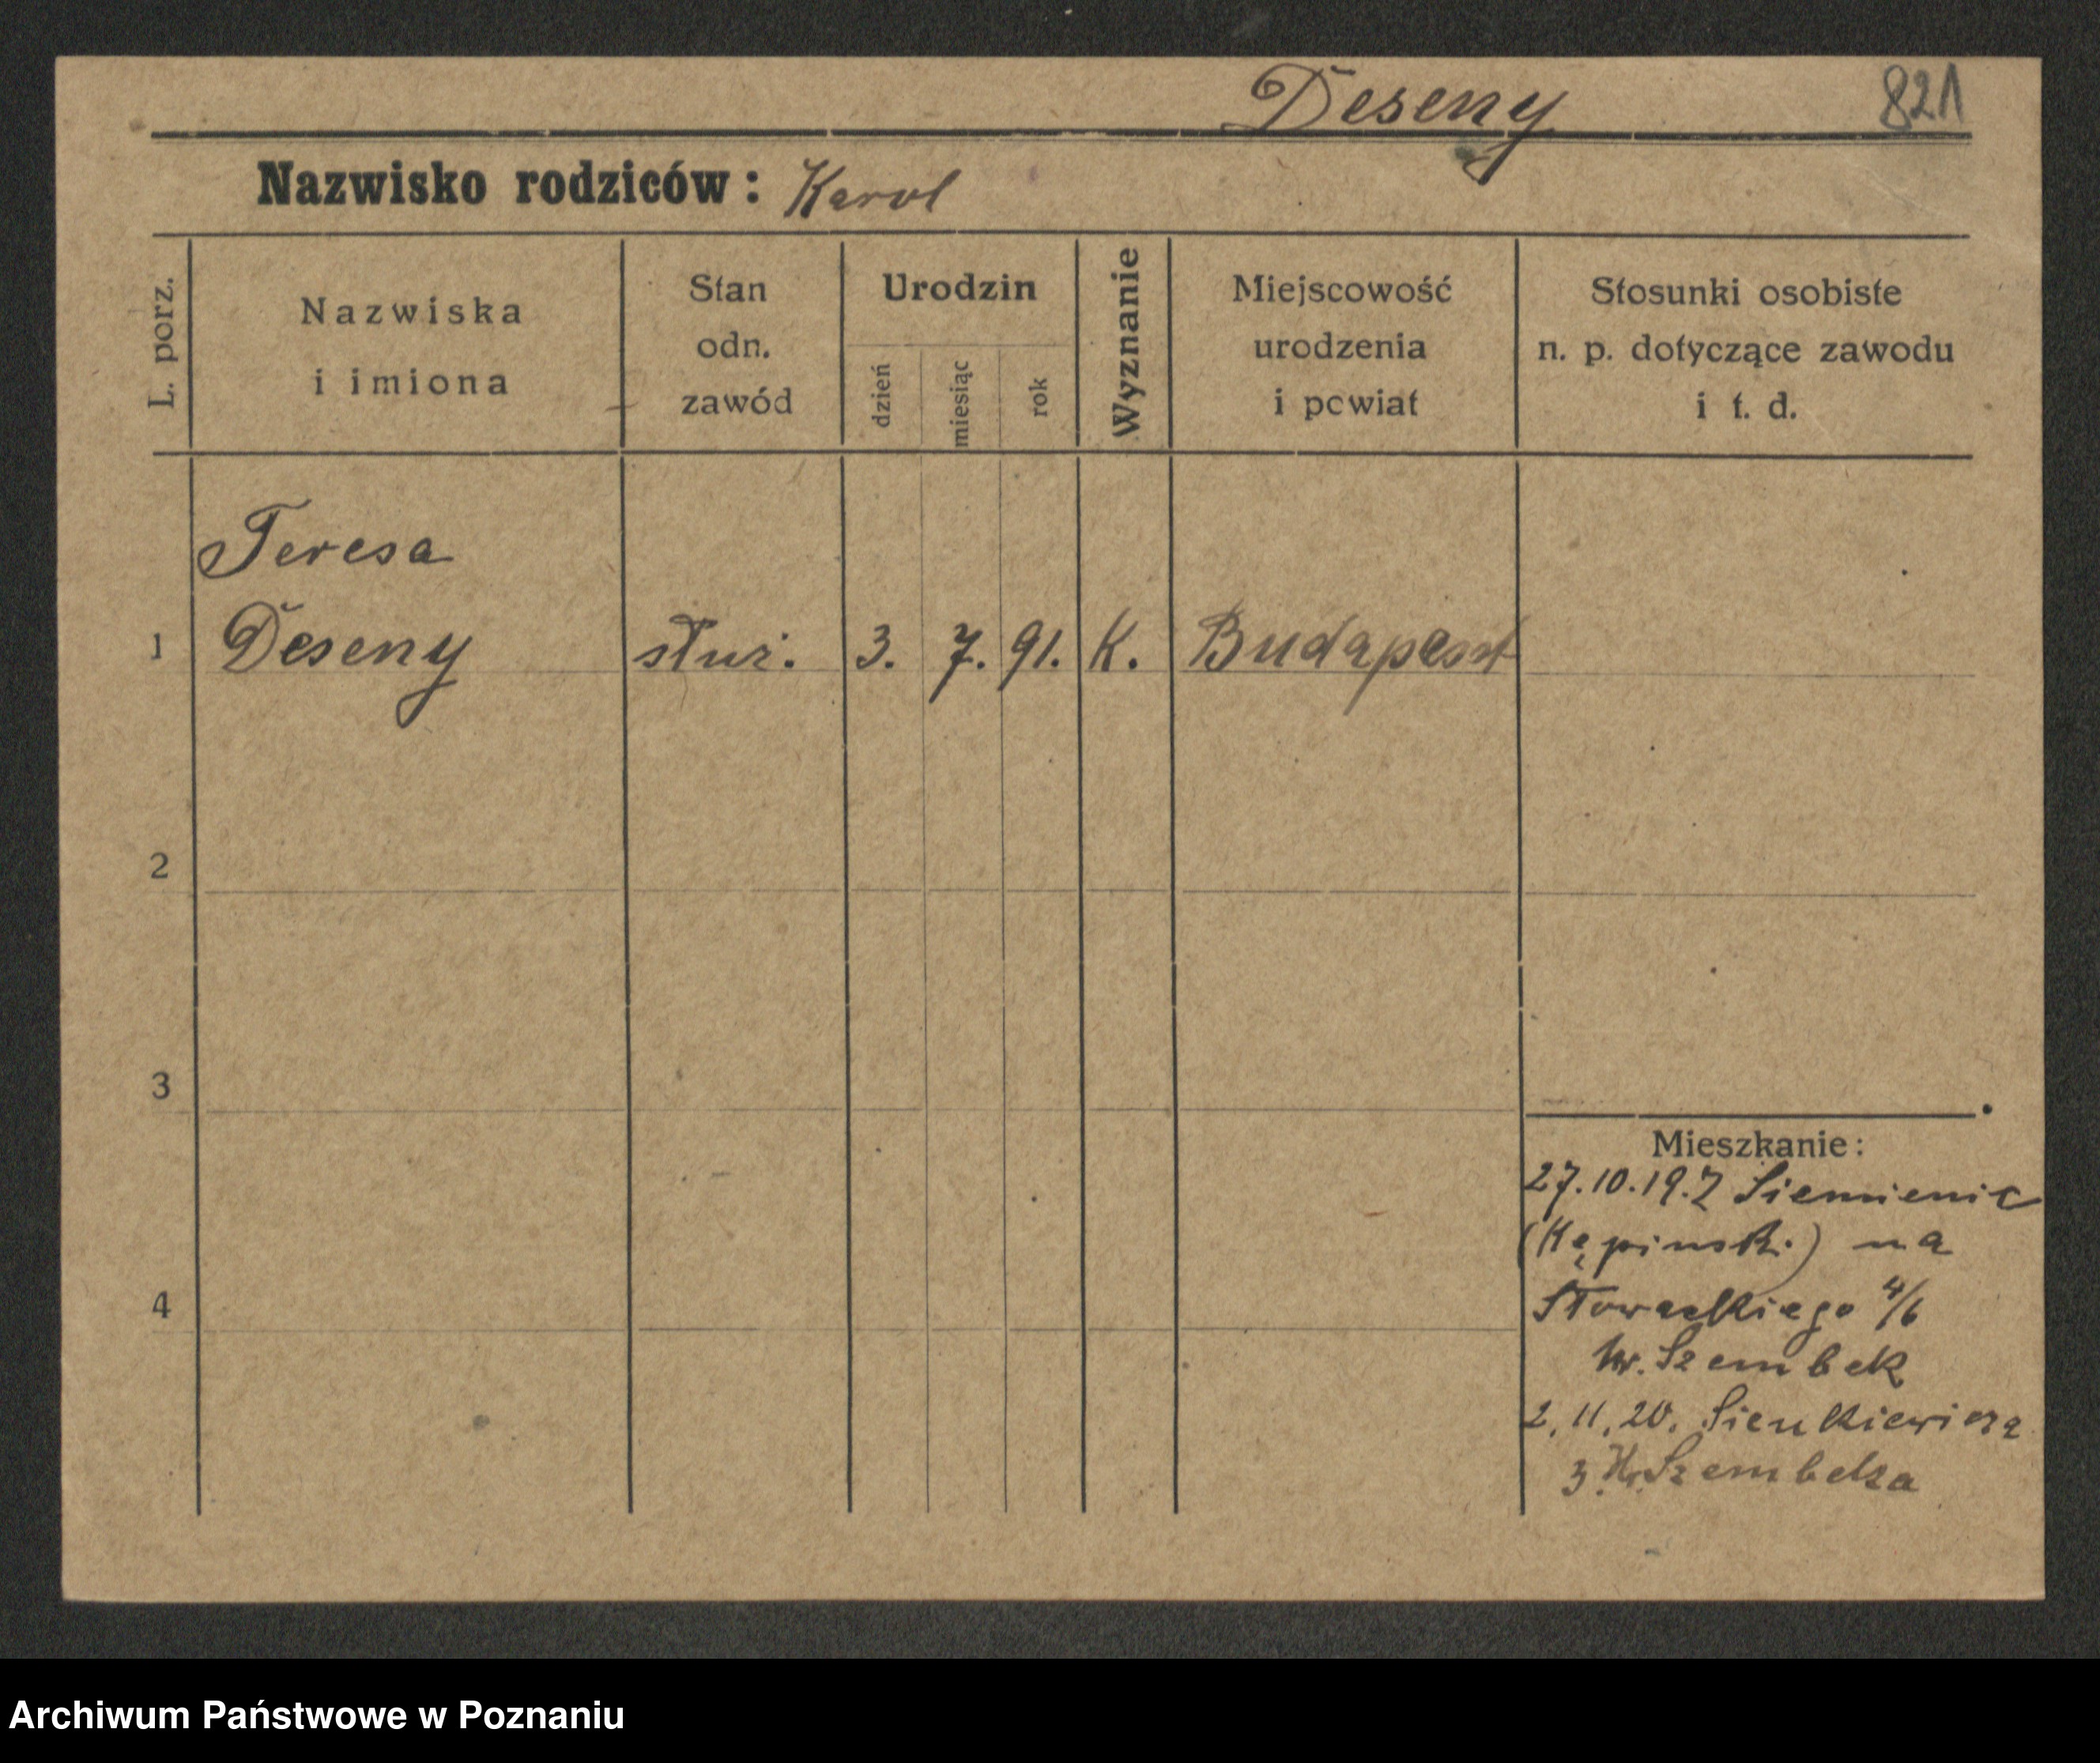 Deseny 821
Nazwisko rodziców: Karol
L. porz.
Nazwiska
i imiona
Stan
odn.
zawód
Urodzin
dzień
miesiąc
rok
Wyznanie
Miejscowość
urodzenia
i powiat
Stosunki osobiste
n. p. dotyczące zawodu
i t. d.
Teresa
1 Deseny służ. 3. 7. 91. K. Budapest
2
3
4
Mieszkanie:
27.10.19. Z Siemienic
(Kępinski) na
Słowackiego 4/6
hr. Szembek
2.11.20. Sienkiewicza
3. Hr. Szembeka
Archiwum Państwowe w Poznaniu